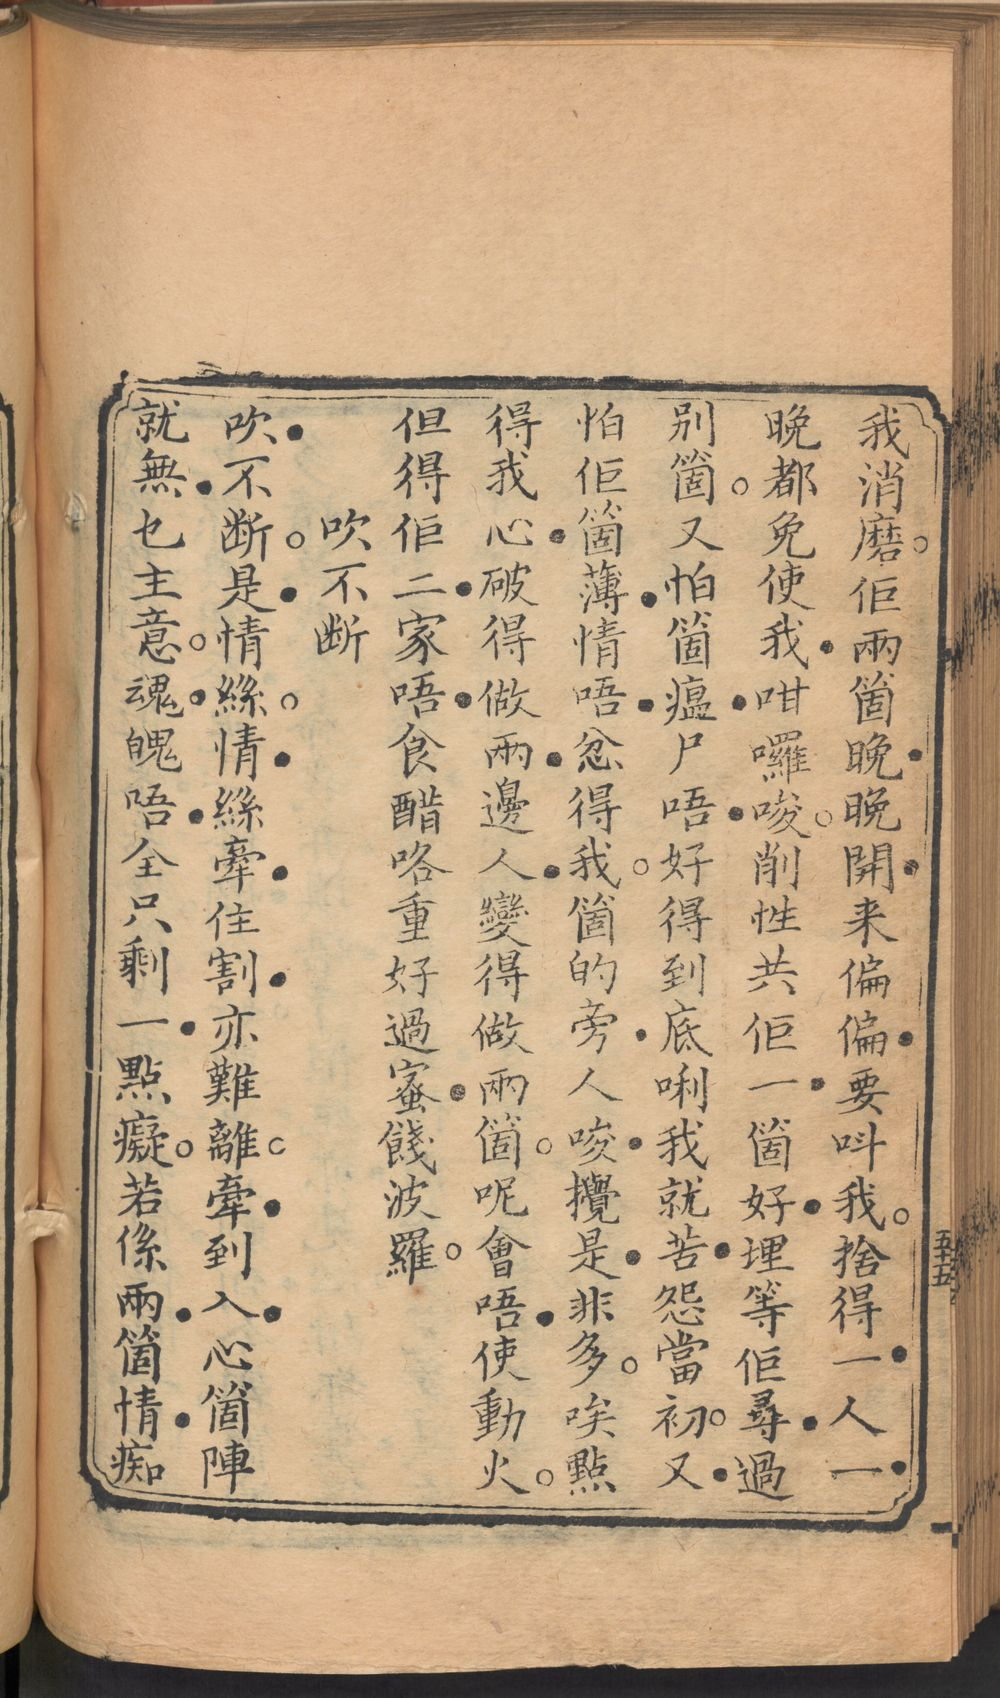 我消磨。佢兩箇晚晚開来偏偏要呌我。捨得一人一
晚都免使我咁囉唆。削性共佢一箇好埋等佢尋過
別箇。又怕箇瘟尸唔好得到底唎我就苦怨當初。又
怕佢箇薄情唔忿得我。箇的旁人唆攪是非多。唉點
得我心破得做兩邊人變得做兩箇。呢會唔使動火。
但得佢二家唔食醋咯重好過蜜餞波羅。
吹不断
吹不断。是情絲。情絲牽住割亦難離。牽到入心箇陣
就無乜主意。魂魄唔全只剩一點癡。若係兩箇情痴
五十五